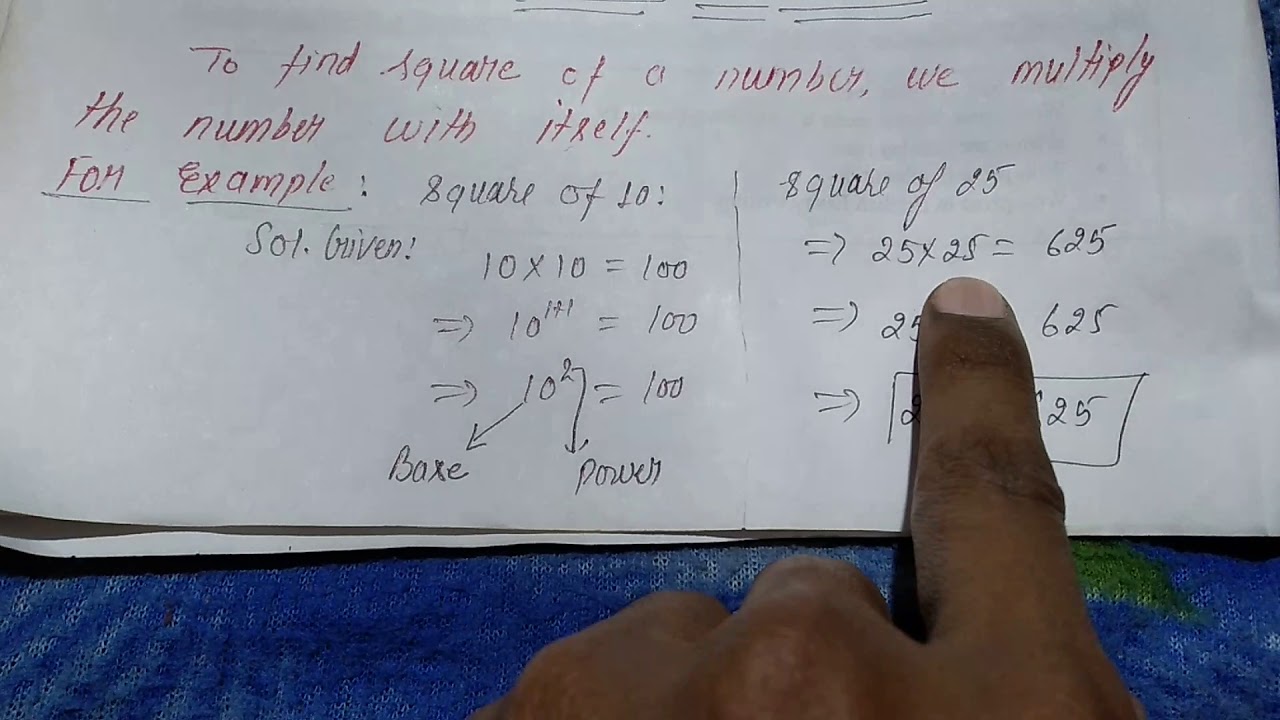 To find square of a number, we multiply
the number with itself.
For Example:
square of 10:
Sol. Given:
10 × 10 = 100
⇒ 10¹⁺¹ = 100
⇒ 10² = 100
Base
Power
square of 25
⇒ 25×25 = 625
⇒ 25 625
⇒ 25